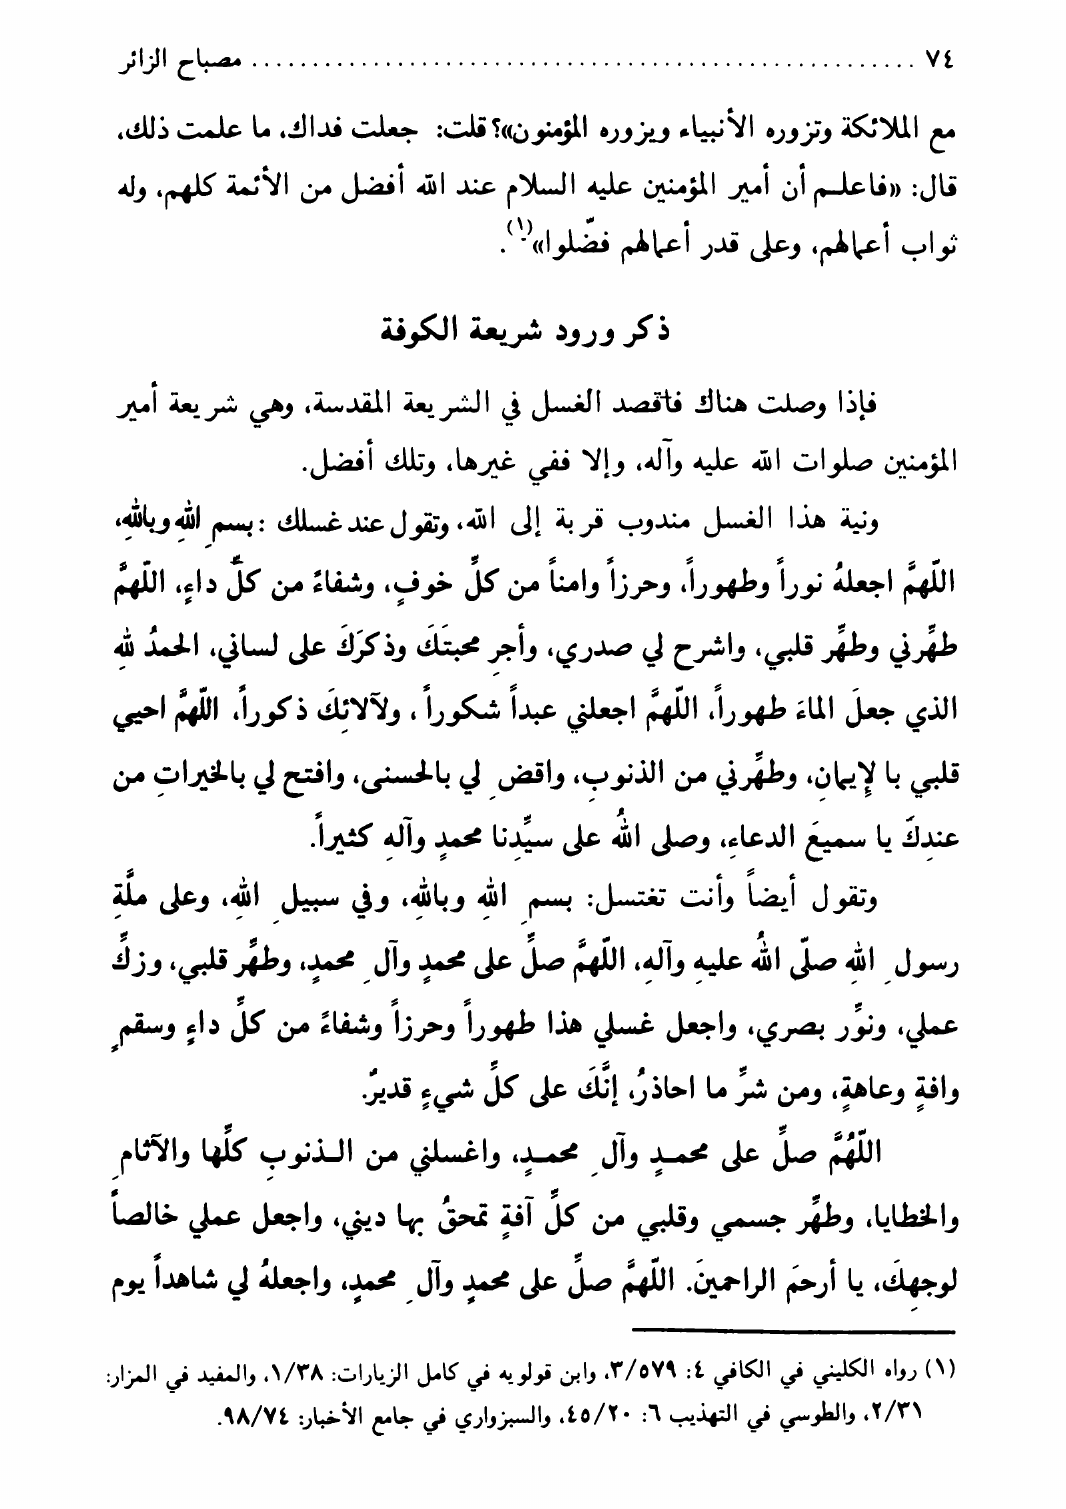 ٧٤ ................................................ مصباح الزائر
مع الملائكة وتزوره الأنبياء ويزوره المؤمنون»؟ قلت: جعلت فداك، ما علمت ذلك،
قال: «فاعلم أن أمير المؤمنين عليه السلام عند الله أفضل من الأئمة كلهم، وله
ثواب أعمالهم، وعلى قدر أعمالهم فضّلوا»(١).
ذكر ورود شريعة الكوفة
فإذا وصلت هناك فاقصد الغسل في الشريعة المقدسة، وهي شريعة أمير
المؤمنين صلوات الله عليه وآله، وإلا ففي غيرها، وتلك أفضل.
ونية هذا الغسل مندوب قربة إلى الله، وتقول عند غسلك: بسمِ اللهِ وباللهِ،
اللّهمَّ اجعلهُ نوراً وطهوراً، وحرزاً وامناً من كلِّ خوفٍ، وشفاءً من كلِّ داءٍ، اللّهمَّ
طهِّرني وطهِّر قلبي، واشرح لي صدري، وأجرِ محبتَكَ وذكرَكَ على لساني، الحمدُ للهِ
الذي جعلَ الماءَ طهوراً، اللّهمَّ اجعلني عبداً شكوراً، ولآلائِكَ ذكوراً، اللّهمَّ احيي
قلبي بالإِيمانِ، وطهِّرني من الذنوبِ، واقضِ لي بالحسنى، وافتح لي بالخيراتِ من
عندِكَ يا سميعَ الدعاءِ، وصلى اللهُ على سيِّدِنا محمدٍ وآلهِ كثيراً.
وتقول أيضاً وأنت تغتسل: بسمِ اللهِ وباللهِ، وفي سبيلِ اللهِ، وعلى ملَّةِ
رسولِ اللهِ صلّى اللهُ عليهِ وآلهِ، اللّهمَّ صلِّ على محمدٍ وآلِ محمدٍ، وطهِّر قلبي، وزكِّ
عملي، ونوِّر بصري، واجعل غسلي هذا طهوراً وحرزاً وشفاءً من كلِّ داءٍ وسقمٍ
وافةٍ وعاهةٍ، ومن شرِّ ما احاذرُ، إنَّكَ على كلِّ شيءٍ قديرٌ.
اللّهُمَّ صلِّ على محمدٍ وآلِ محمدٍ، واغسلني من الذنوبِ كلِّها والآثامِ
والخطايا، وطهِّر جسمي وقلبي من كلِّ آفةٍ تمحقُ بها ديني، واجعل عملي خالصاً
لوجهِكَ، يا أرحمَ الراحمينَ. اللّهمَّ صلِّ على محمدٍ وآلِ محمدٍ، واجعلهُ لي شاهداً يوم
(١) رواه الكليني في الكافي ٤: ٣/٥٧٩، وابن قولويه في كامل الزيارات: ١/٣٨، والمفيد في المزار:
٢/٣١، والطوسي في التهذيب ٦: ٤٥/٢٠، والسبزواري في جامع الأخبار: ٩٨/٧٤.